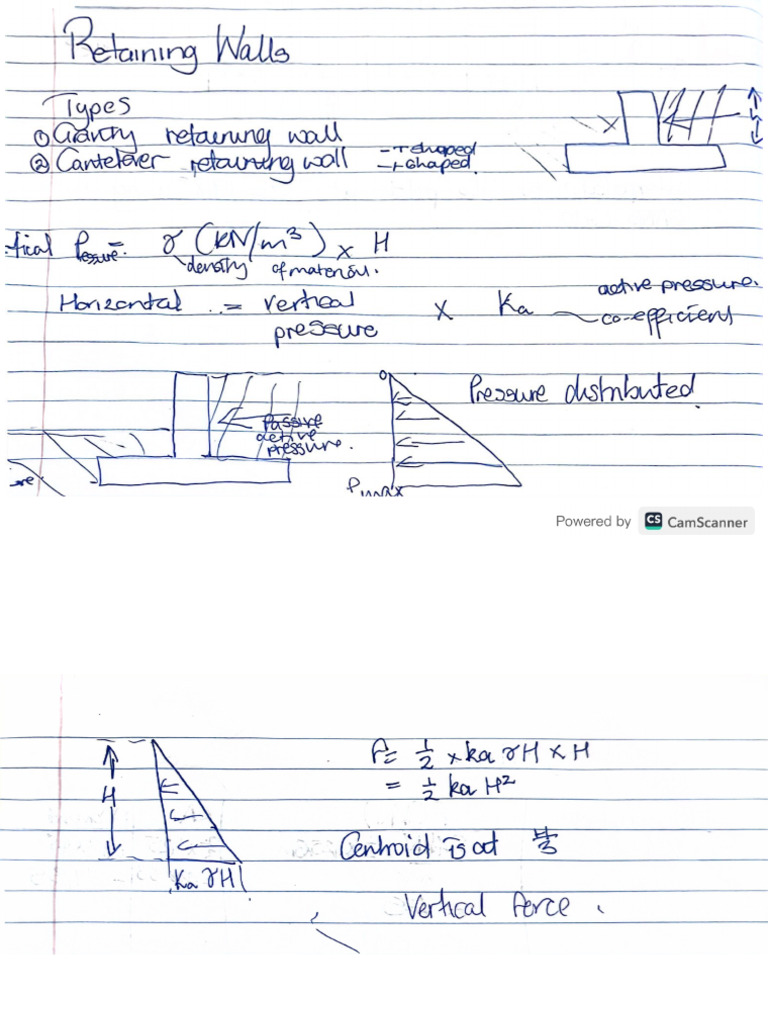 Retaining Walls
Types
① Gravity retaining wall
② Cantelever retaining wall - T shaped
- L shaped.
tical Pessure = γ (kN/m³) x H
density of material.
Horizontal .. = vertical pressure x Ka active pressure. co-efficient
0 Pressure distributed.
Passure
active
pressure.
Pmax
Powered by CS CamScanner
H
P = ½ x ka γH x H
= ½ ka H²
Centroid is at
Ka γH
Vertical force